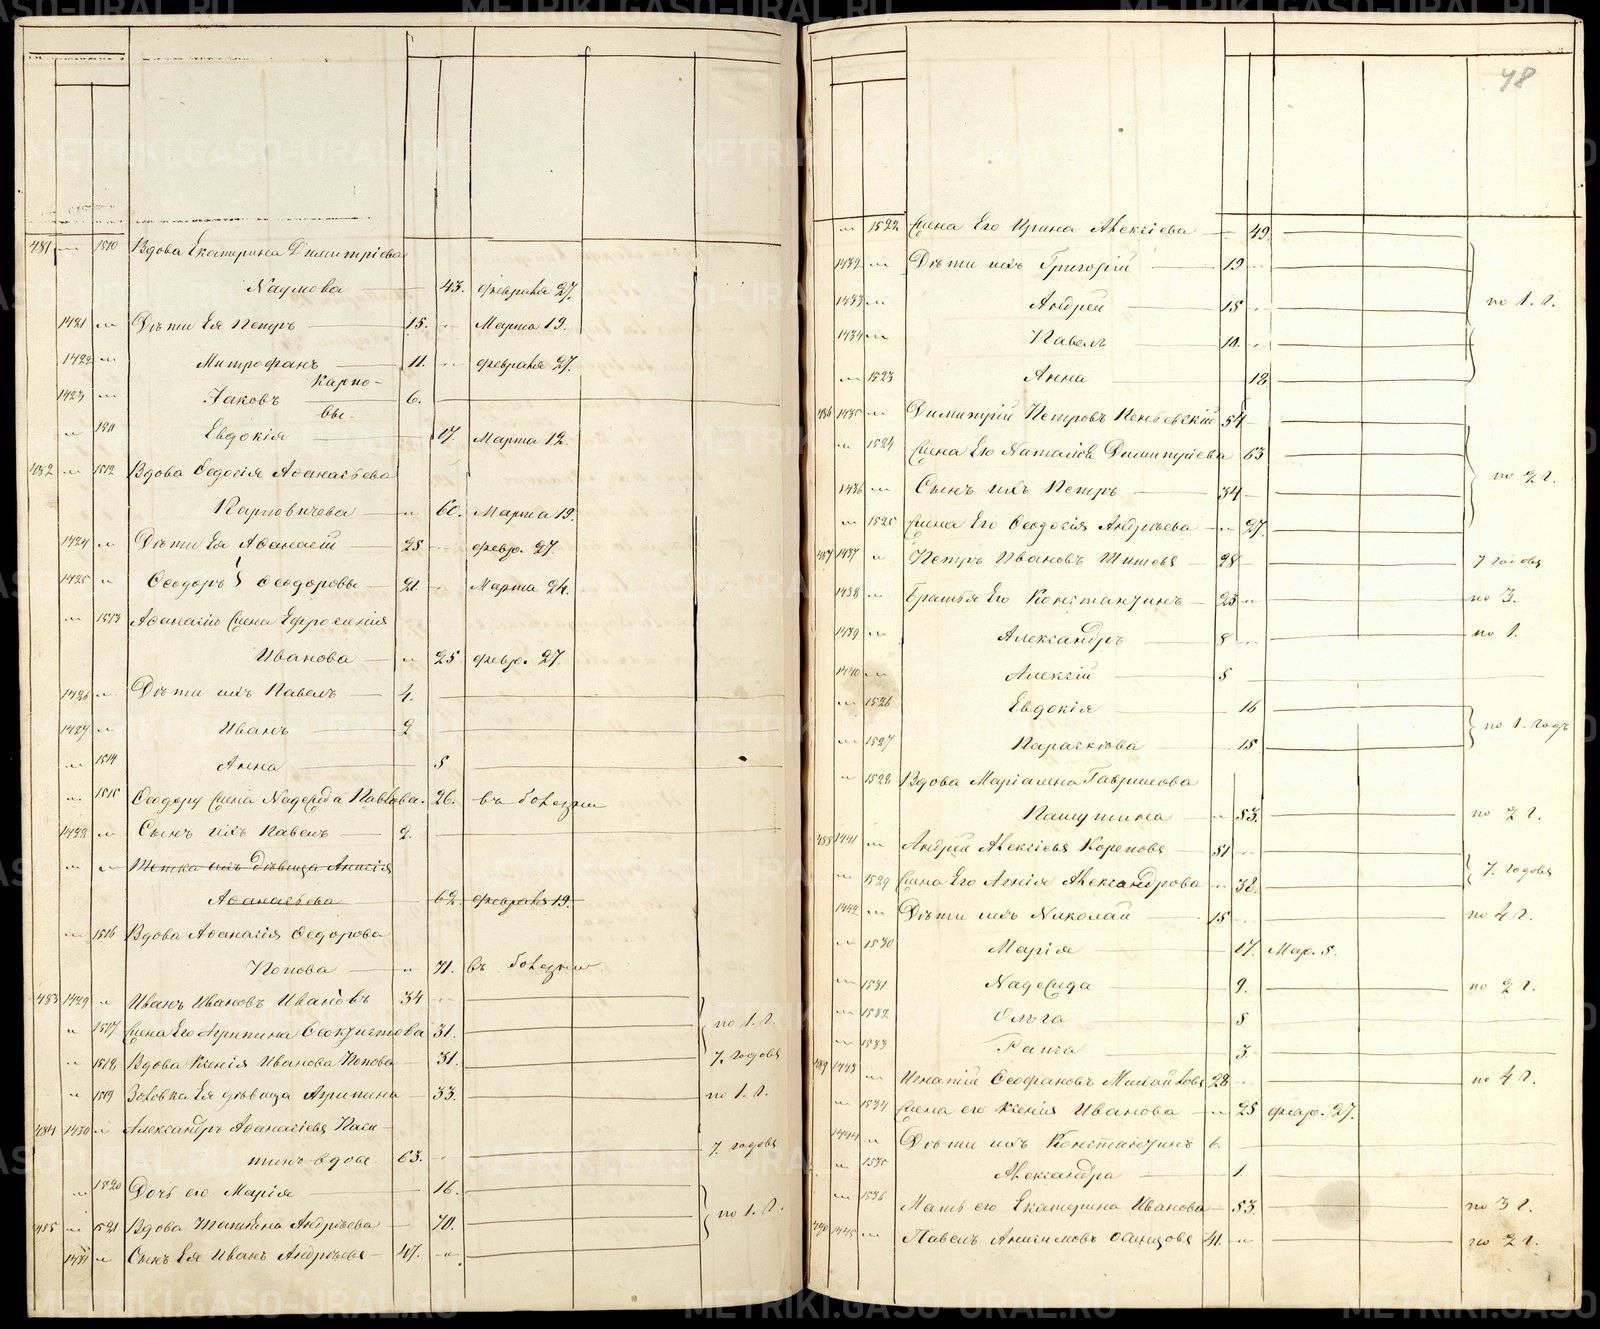 48
481 — 1510 Вдова Екатерина Димитріева
Наумова 43. февраля 27.
1421 — Дѣти Ея Петръ 15. Марта 19.
1422 — Митрофанъ 11. февраля 27.
Карпо-
1423 — Іаковъ 6.
вы.
1511 Евдокія 17. Марта 12.
482 — 1512 Вдова Ѳедосія Аѳанасьева
Карповичева 60. Марта 19.
1424 — Дѣти Ея Аѳанасій 25 февр. 27
1425 — Ѳеодоръ } Ѳеодоровы 21 Марта 24.
1513 Аѳанасію жена Ефросинія
Иванова 25 февр. 27.
1426 — Дѣти ихъ Павелъ 4.
1427 — Иванъ 2
1514 Анна 5
1515 Ѳеодору жена Надежда Павлова. 26. въ болезни
1428 — Сынъ ихъ Павелъ 2.
Тетка ихъ дѣвица Анисія
Аѳанасьева 62. февраля 19.
1516 Вдова Аѳанасія Ѳедорова
Попова 71. въ болезни
483 1429 Иванъ Ивановъ Ивановъ 34
1517 Жена Его Агрипина Ѳеоктистова 31. по 1. г.
1518 Вдова Ксенія Иванова Попова 31. 7. годовъ
1519 Золовка Ея дѣвица Агрипина 33. по 1. г.
484 1430 Александръ Аѳанасіевъ
вдовъ. 63. 7. годовъ
1520 Дочь его Марія 16.
485 — 1521 Вдова Татіяна Андрѣева 70. по 1. г.
1431 Сынъ Ея Иванъ Андрѣевъ 47.
1522 Жена Его Ирина Алексіева 49
1432 — Дѣти ихъ Григорій 19
1433 — Андрей 15 по 1. г.
1434 — Павелъ 10.
1523 Анна 18
486 1435 — Димитрій Петровъ 54
1524 Жена Его Наталія Димитріева 63
1436 — Сынъ ихъ Петръ 34 по 2 г.
1525 Жена Его Ѳеодосія Андрѣева 27.
487 1437 Петръ Ивановъ Шишовъ 28 7 годовъ
1438 — Братья Его Константинъ 23 по 3.
1439 — Александръ 8 по 1.
1440 — Алексій 5
1526 Евдокія 16
1527 Параскова 15 по 1. годъ
1528 Вдова Маріамна Гаврилова
Пашутина 53. по 2 г.
488 1441 Андрей Алексіевъ Кореновъ 51
1529 Жена Его Агнія Александрова 38. 7. годовъ
1442 — Дѣти ихъ Николай 15 по 4 г.
1530 Марія 17. Мар. 5.
1531 Надежда 9. по 2 г.
1532 Ольга 5
1533 Раиса 3
489 1443 Игнатій Ѳеофановъ 28 по 4 г.
1534 Жена его Ксенія Иванова 25 февр. 27.
1444 Дѣти ихъ Константинъ 6.
1535 Александра 1
1536 Мать его Екатерина Иванова 53. по 3 г.
490 1445 Павелъ Анисимовъ 41. по 2 г.
METRIKI.GASO-URAL.RU